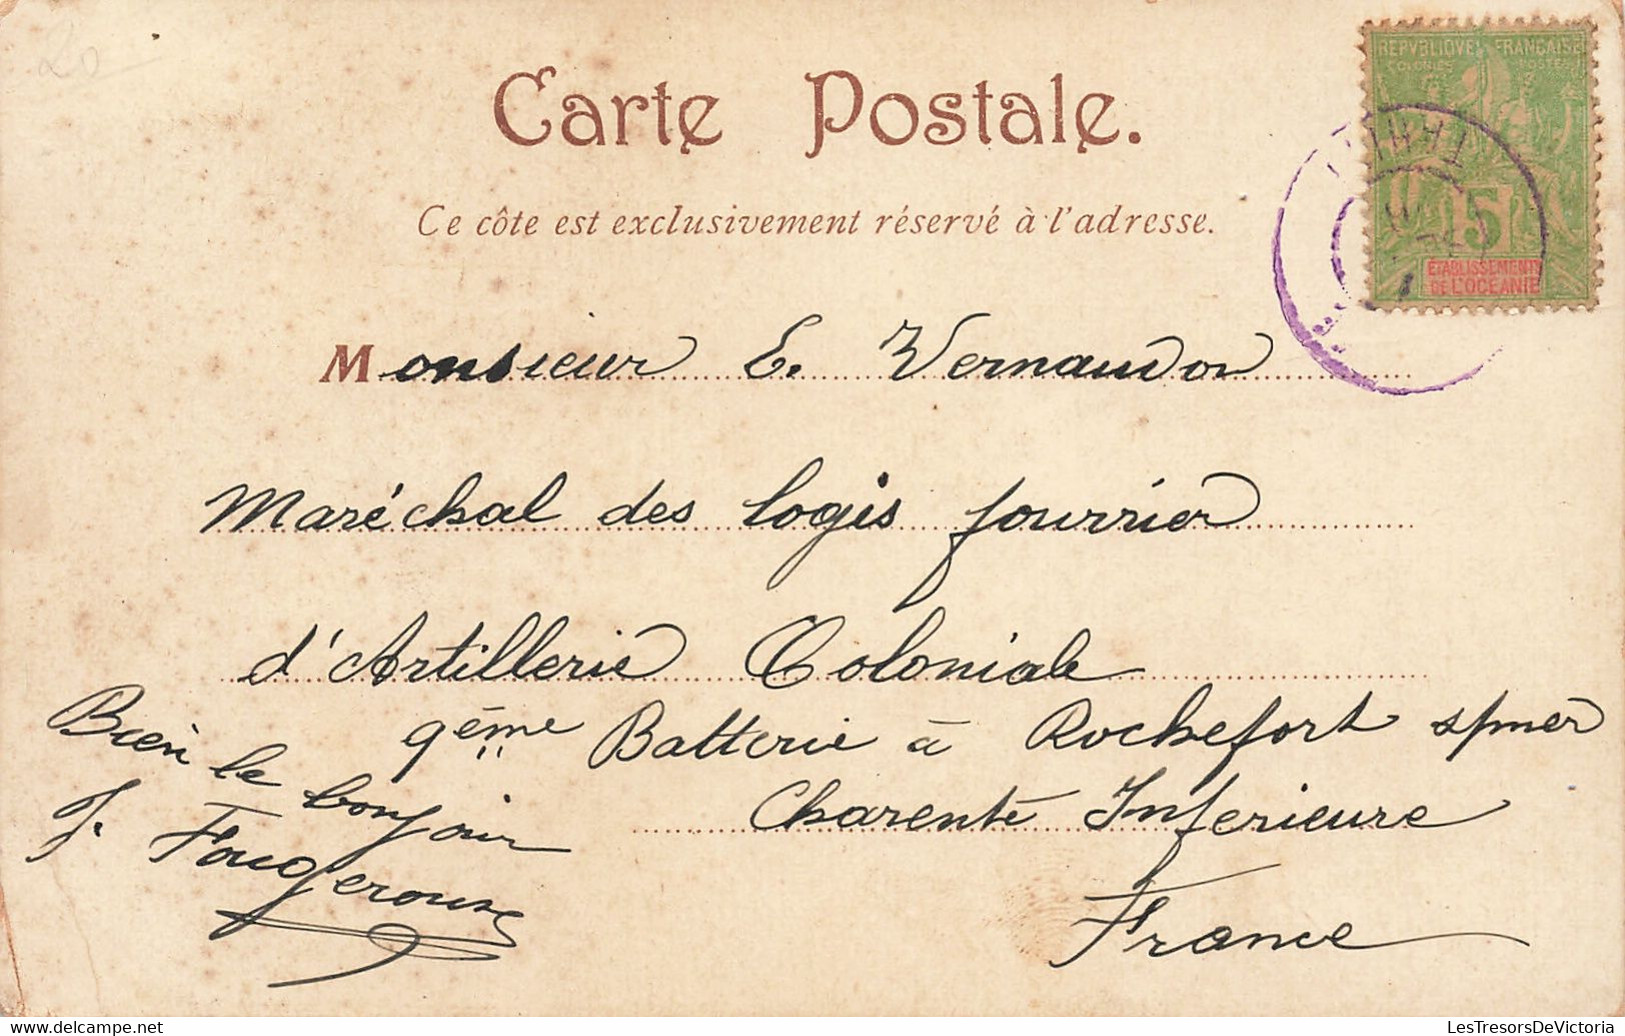 20
Carte Postale.
Ce côte est exclusivement réservé à l'adresse.
REPVBLIQVE FRANÇAISE
COLONIES POSTES
TAHITI
5
ÉTABLISSEMENTS
DE L'OCÉANIE
Monsieur E. Vernaudon
Maréchal des logis fourrier
d'Artillerie Coloniale
9ème Batterie à Rochefort s/mer
Charente Inférieure
France
Bien le bonjour
J. Fougerouse
LesTresorsDeVictoria